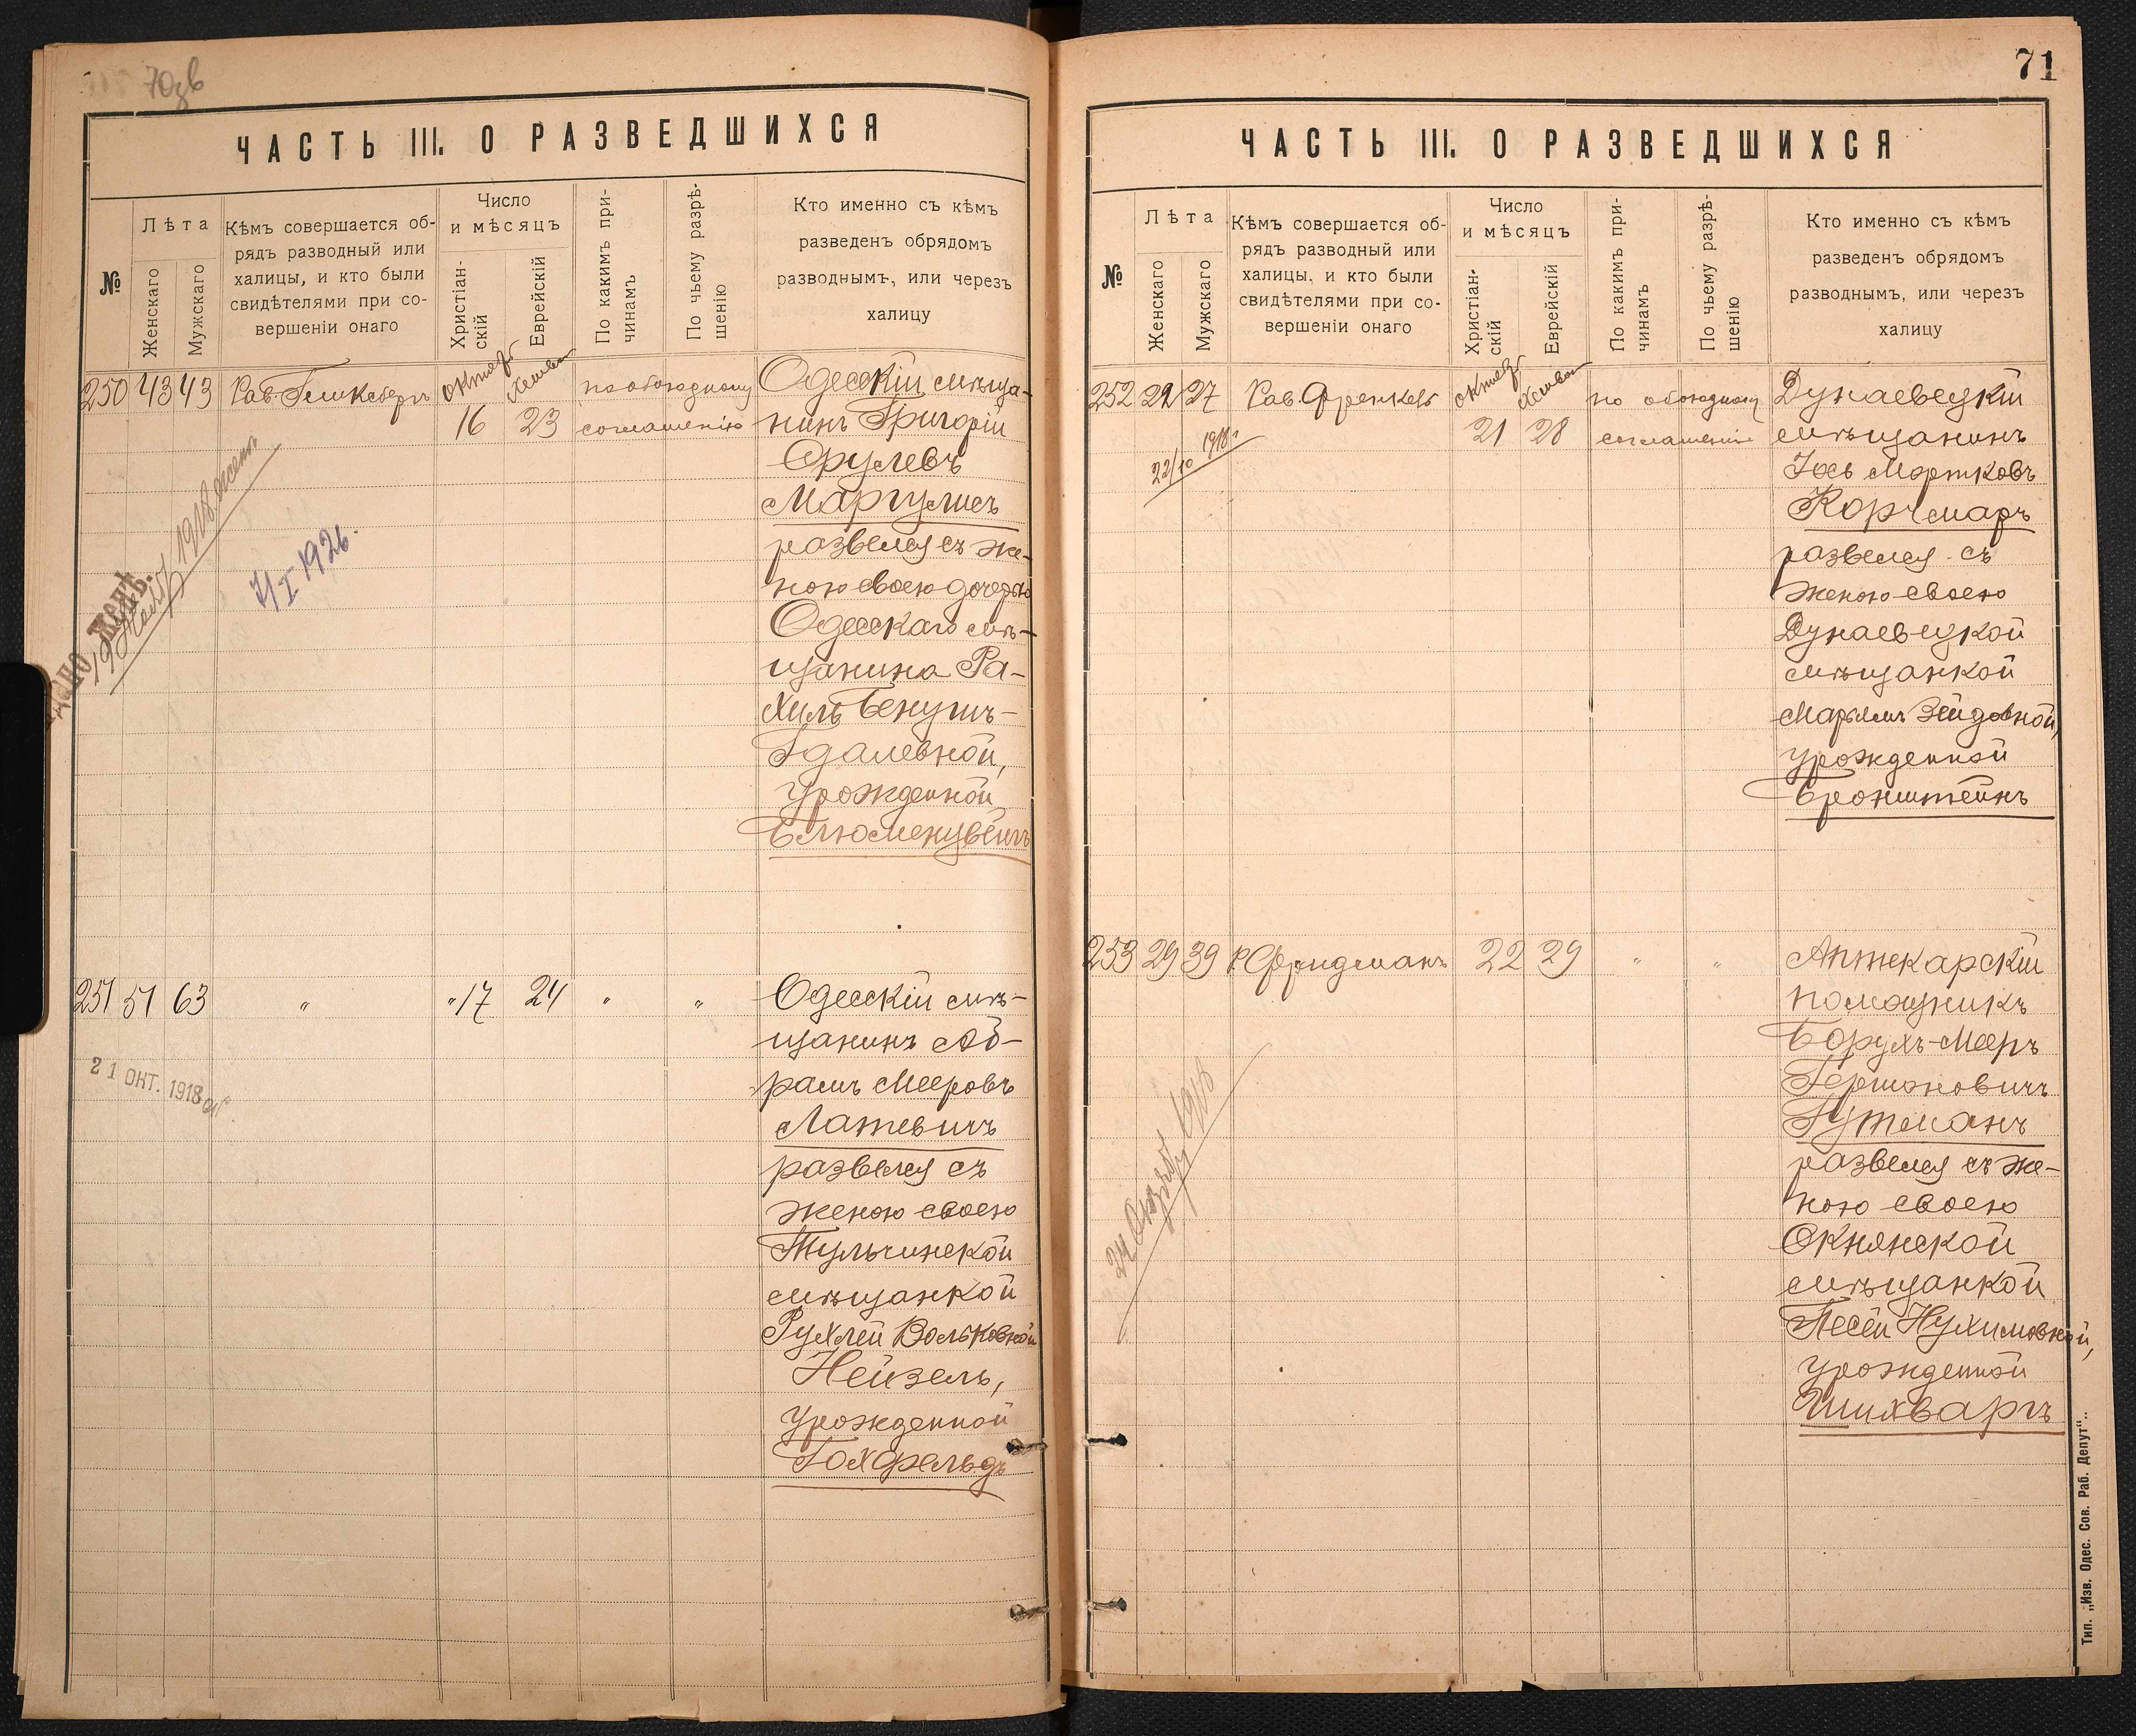 70зв
ЧАСТЬ III. О РАЗВЕДШИХСЯ
№
Лѣта
Женскаго
Мужскаго
Кѣмъ совершается об-
рядъ разводный или
халицы, и кто были
свидѣтелями при со-
вершеніи онаго
Число
и мѣсяцъ
Христіан-
скій
Еврейскій
По какимъ при-
чинамъ
По чьему разрѣ-
шенію
Кто именно съ кѣмъ
разведенъ обрядомъ
разводнымъ, или черезъ
халицу
250 43 43
Рав.
октяб
Хешван
16 23
по обоюдному
соглашенію
Одесскій мѣща-
нинъ Григорій
Срулевъ
Маргулисъ
развелся съ же-
ною своею дочерью
Одесскаго мѣ-
щанина Ра-
хилъ Бенумъ-
Гдалевной,
урожденной
Блюменцвейгъ
1918
4/I 1926.
251 51 63 " " 17 24 " "
Одесскій мѣ-
щанинъ Аб-
рамъ Мееровъ
Латевичъ
развелся съ
женою своею
Тульчинской
мѣщанкой
Рухлей Вольковной
Нейзель,
урожденной
Гохфельдъ
21 ОКТ. 1918
71
ЧАСТЬ III. О РАЗВЕДШИХСЯ
№
Лѣта
Женскаго
Мужскаго
Кѣмъ совершается об-
рядъ разводный или
халицы, и кто были
свидѣтелями при со-
вершеніи онаго
Число
и мѣсяцъ
Христіан-
скій
Еврейскій
По какимъ при-
чинамъ
По чьему разрѣ-
шенію
Кто именно съ кѣмъ
разведенъ обрядомъ
разводнымъ, или черезъ
халицу
252 22 27
Рав. Френкель
октяб
Хешван
21 28
по обоюдному
соглашенію
Дунаевецкій
мѣщанинъ
Іось Мортковъ
Корчмаръ
развелся съ
женою своею
Дунаевецкой
мѣщанкой
Марьямъ Зейдовной,
урожденной
Бронштейнъ
22/10 1918г
253 29 39 Р. Фридманъ 22 29 " "
Аптекарскій
помощникъ
Борухъ-Мееръ
Гершоновичъ
Гутманъ
развелся съ же-
ною своею
Окнянской
мѣщанкой
Песей Нухимовной,
урожденной
Шихваргъ
24 Октяб 1918
Тип. „Изв. Одес. Сов. Раб. Депут“.